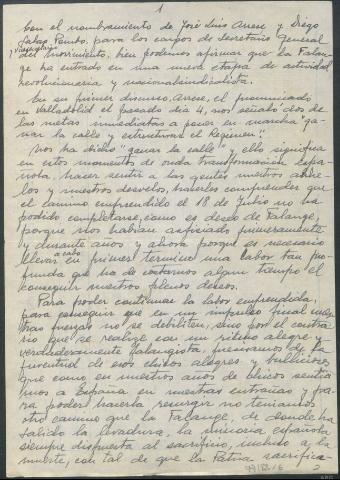 1
Con el nombramiento de José Luis Arrese y Diego
Salas Pombo, para los cargos de Secretario General
y Vicesecretario
del Movimiento, bien podemos afirmar que la Falan-
ge ha entrado en una nueva etapa de actividad
revolucionaria y nacionalsindicalista.
En su primer discurso, Arrese, el pronunciado
en Valladolid el pasado día 4, nos señaló dos de
las metas inmediatas a poner en marcha "ga-
nar la calle y estructurar el Régimen".
Nos ha dicho "ganar la calle" y ello significa
en estos momentos de onda transformación espa-
ñola, hacer sentir a las gentes nuestros anhe-
los y nuestros desvelos, hacerles comprender que
el camino emprendido el 18 de Julio no ha
podido completarse, como es deseo de Falange,
porque nos habían asfixiado primeramente
y durante años y ahora porque es necesario
llevar a cabo en primer termino una labor tan pro-
funda que ha de costarnos algun tiempo el
conseguir nuestros plenos deseos.
Para poder continuar la labor emprendida,
para conseguir que en un impulso final nues-
tras fuerzas no se debiliten, sino por el contra-
rio que se realize con un ritmo alegre y
verdaderamente falangista, precisamos de la
juventud de esos chicos alegres y bulliciosos
que como en nuestros años de chicos sentia-
mos a España en nuestras entrañas y pa-
ra poder hacerla resurgir no teniamos
otro camino que la Falange, de donde ha
salido la levadura, la minoria española
siempre dispuesta al sacrificio, incluso a la
muerte, con tal de que la Patria sacrifica-